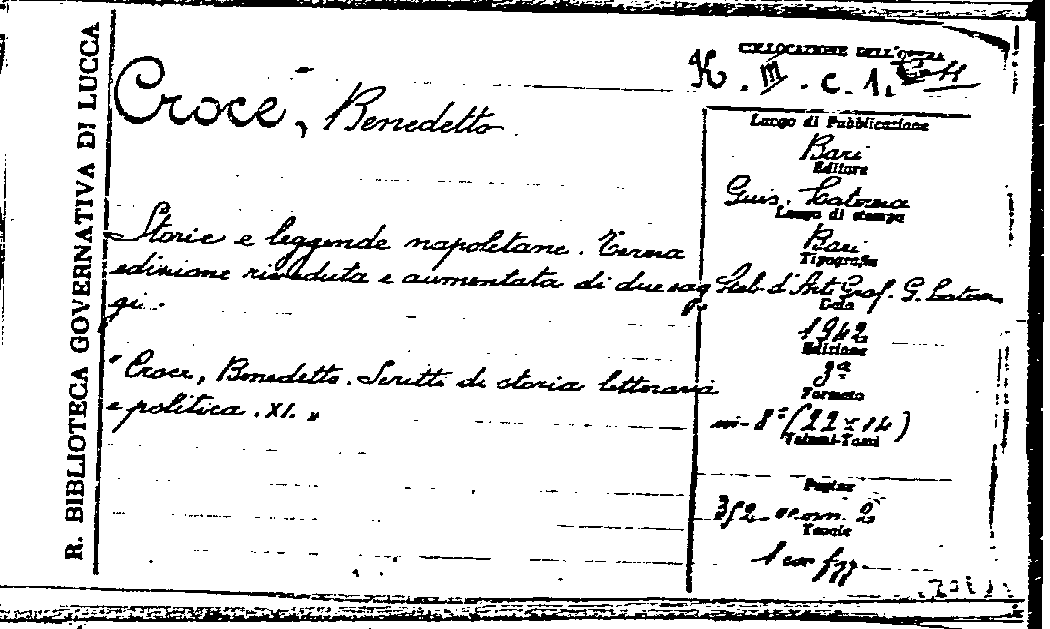 R. BIBLIOTECA GOVERNATIVA DI LUCCA
COLLOCAZIONE DELL'OPERA
K. III. c. 1.
Croce, Benedetto
Storie e leggende napoletane. Terza
edizione riveduta e aumentata di due sag
gi.
"Croce, Benedetto. Scritti di storia letteraria
e politica. XI."
Luogo di Pubblicazione
Bari
Editore
Gius. Laterza
Luogo di stampa
Bari
Tipografia
Stab. d'Art. Graf. G. Laterza
Data
1942
Edizione
3ª
Formato
in-8° (22 x 14)
Volumi-Tomi
Pagine
352 2
Tavole
1 con